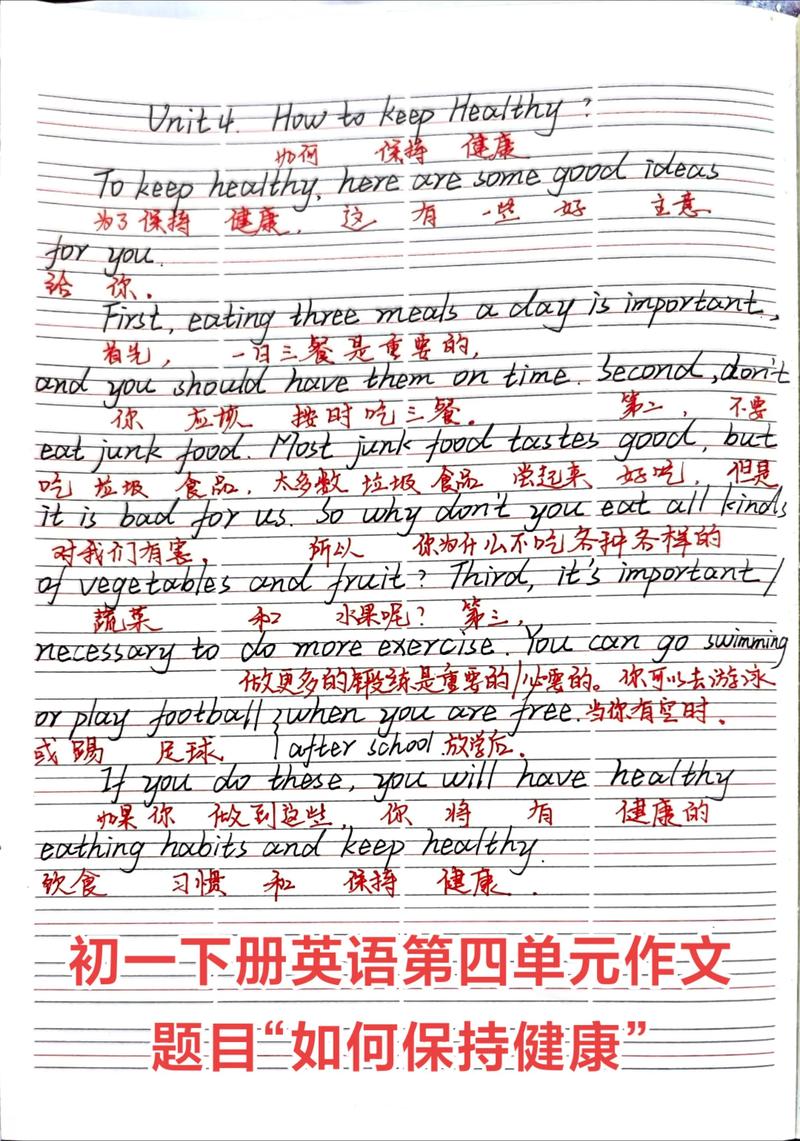 Unit 4. How to keep Healthy?
如何 保持 健康
To keep healthy, here are some good ideas
为了保持 健康, 这 有 一些 好 主意
for you.
给 你.
First, eating three meals a day is important,
首先, 一日三餐是重要的,
and you should have them on time. Second, don't
你 应该 按时吃三餐. 第二, 不要
eat junk food. Most junk food tastes good, but
吃 垃圾 食品. 大多数 垃圾 食品 尝起来 好吃, 但是
it is bad for us. So why don't you eat all kinds
对我们有害. 所以 你为什么不吃各种各样的
of vegetables and fruit? Third, it's important/
蔬菜 和 水果呢? 第三,
necessary to do more exercise. You can go swimming
做更多的锻练是重要的/必要的。你可以去游泳
or play football when you are free. 当你有空时.
或 踢 足球 after school. 放学后.
If you do these, you will have healthy
如果 你 做到这些, 你 将 有 健康的
eathing habits and keep healthy.
饮食 习惯 和 保持 健康.
初一下册英语第四单元作文
题目“如何保持健康”